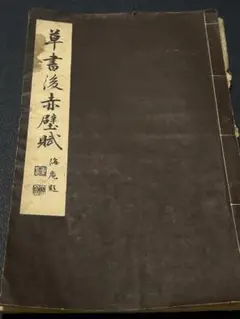 草書後赤壁賦
海庵題